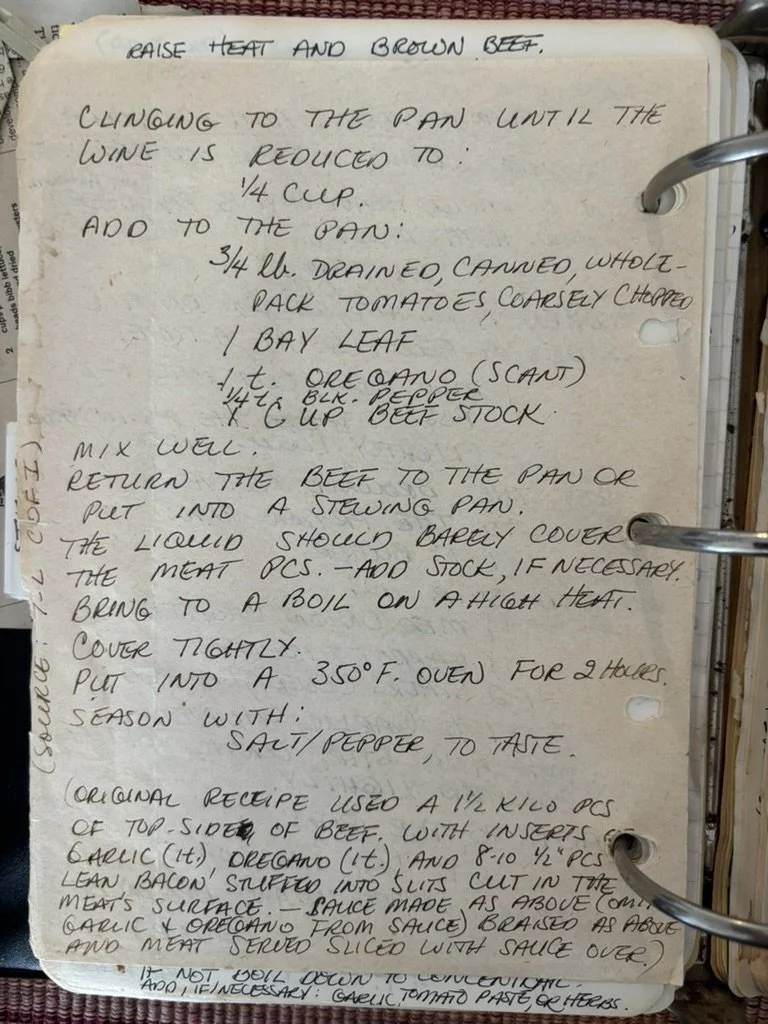 RAISE HEAT AND BROWN BEEF.
CLINGING TO THE PAN UNTIL THE
WINE IS REDUCED TO:
1/4 CUP.
ADD TO THE PAN:
3/4 lb. DRAINED, CANNED, WHOLE-
PACK TOMATOES, COARSELY CHOPPED
1 BAY LEAF
1 t. OREGANO (SCANT)
1/4 t. BLK. PEPPER
1 CUP BEEF STOCK
MIX WELL.
RETURN THE BEEF TO THE PAN OR
PUT INTO A STEWING PAN.
THE LIQUID SHOULD BARELY COVER
THE MEAT PCS. - ADD STOCK, IF NECESSARY.
BRING TO A BOIL ON A HIGH HEAT.
COVER TIGHTLY.
PUT INTO A 350°F. OVEN FOR 2 HOURS.
SEASON WITH:
SALT/PEPPER, TO TASTE.
(ORIGINAL RECEIPE USED A 1 1/2 KILO PCS
OF TOP-SIDE OF BEEF. WITH INSERTS OF
GARLIC (1t.) OREGANO (1t.) AND 8-10 1/2" PCS
LEAN BACON STUFFED INTO SLITS CUT IN THE
MEAT'S SURFACE. - SAUCE MADE AS ABOVE (OMIT
GARLIC & OREGANO FROM SAUCE) BRAISED AS ABOVE
AND MEAT SERVED SLICED WITH SAUCE OVER.)
IF NOT BOIL DOWN TO CONCENTRATE.
ADD, IF NECESSARY: GARLIC, TOMATO PASTE, OR HERBS.
(SOURCE: T-L
2 cups
heads bibb lettuce
dried